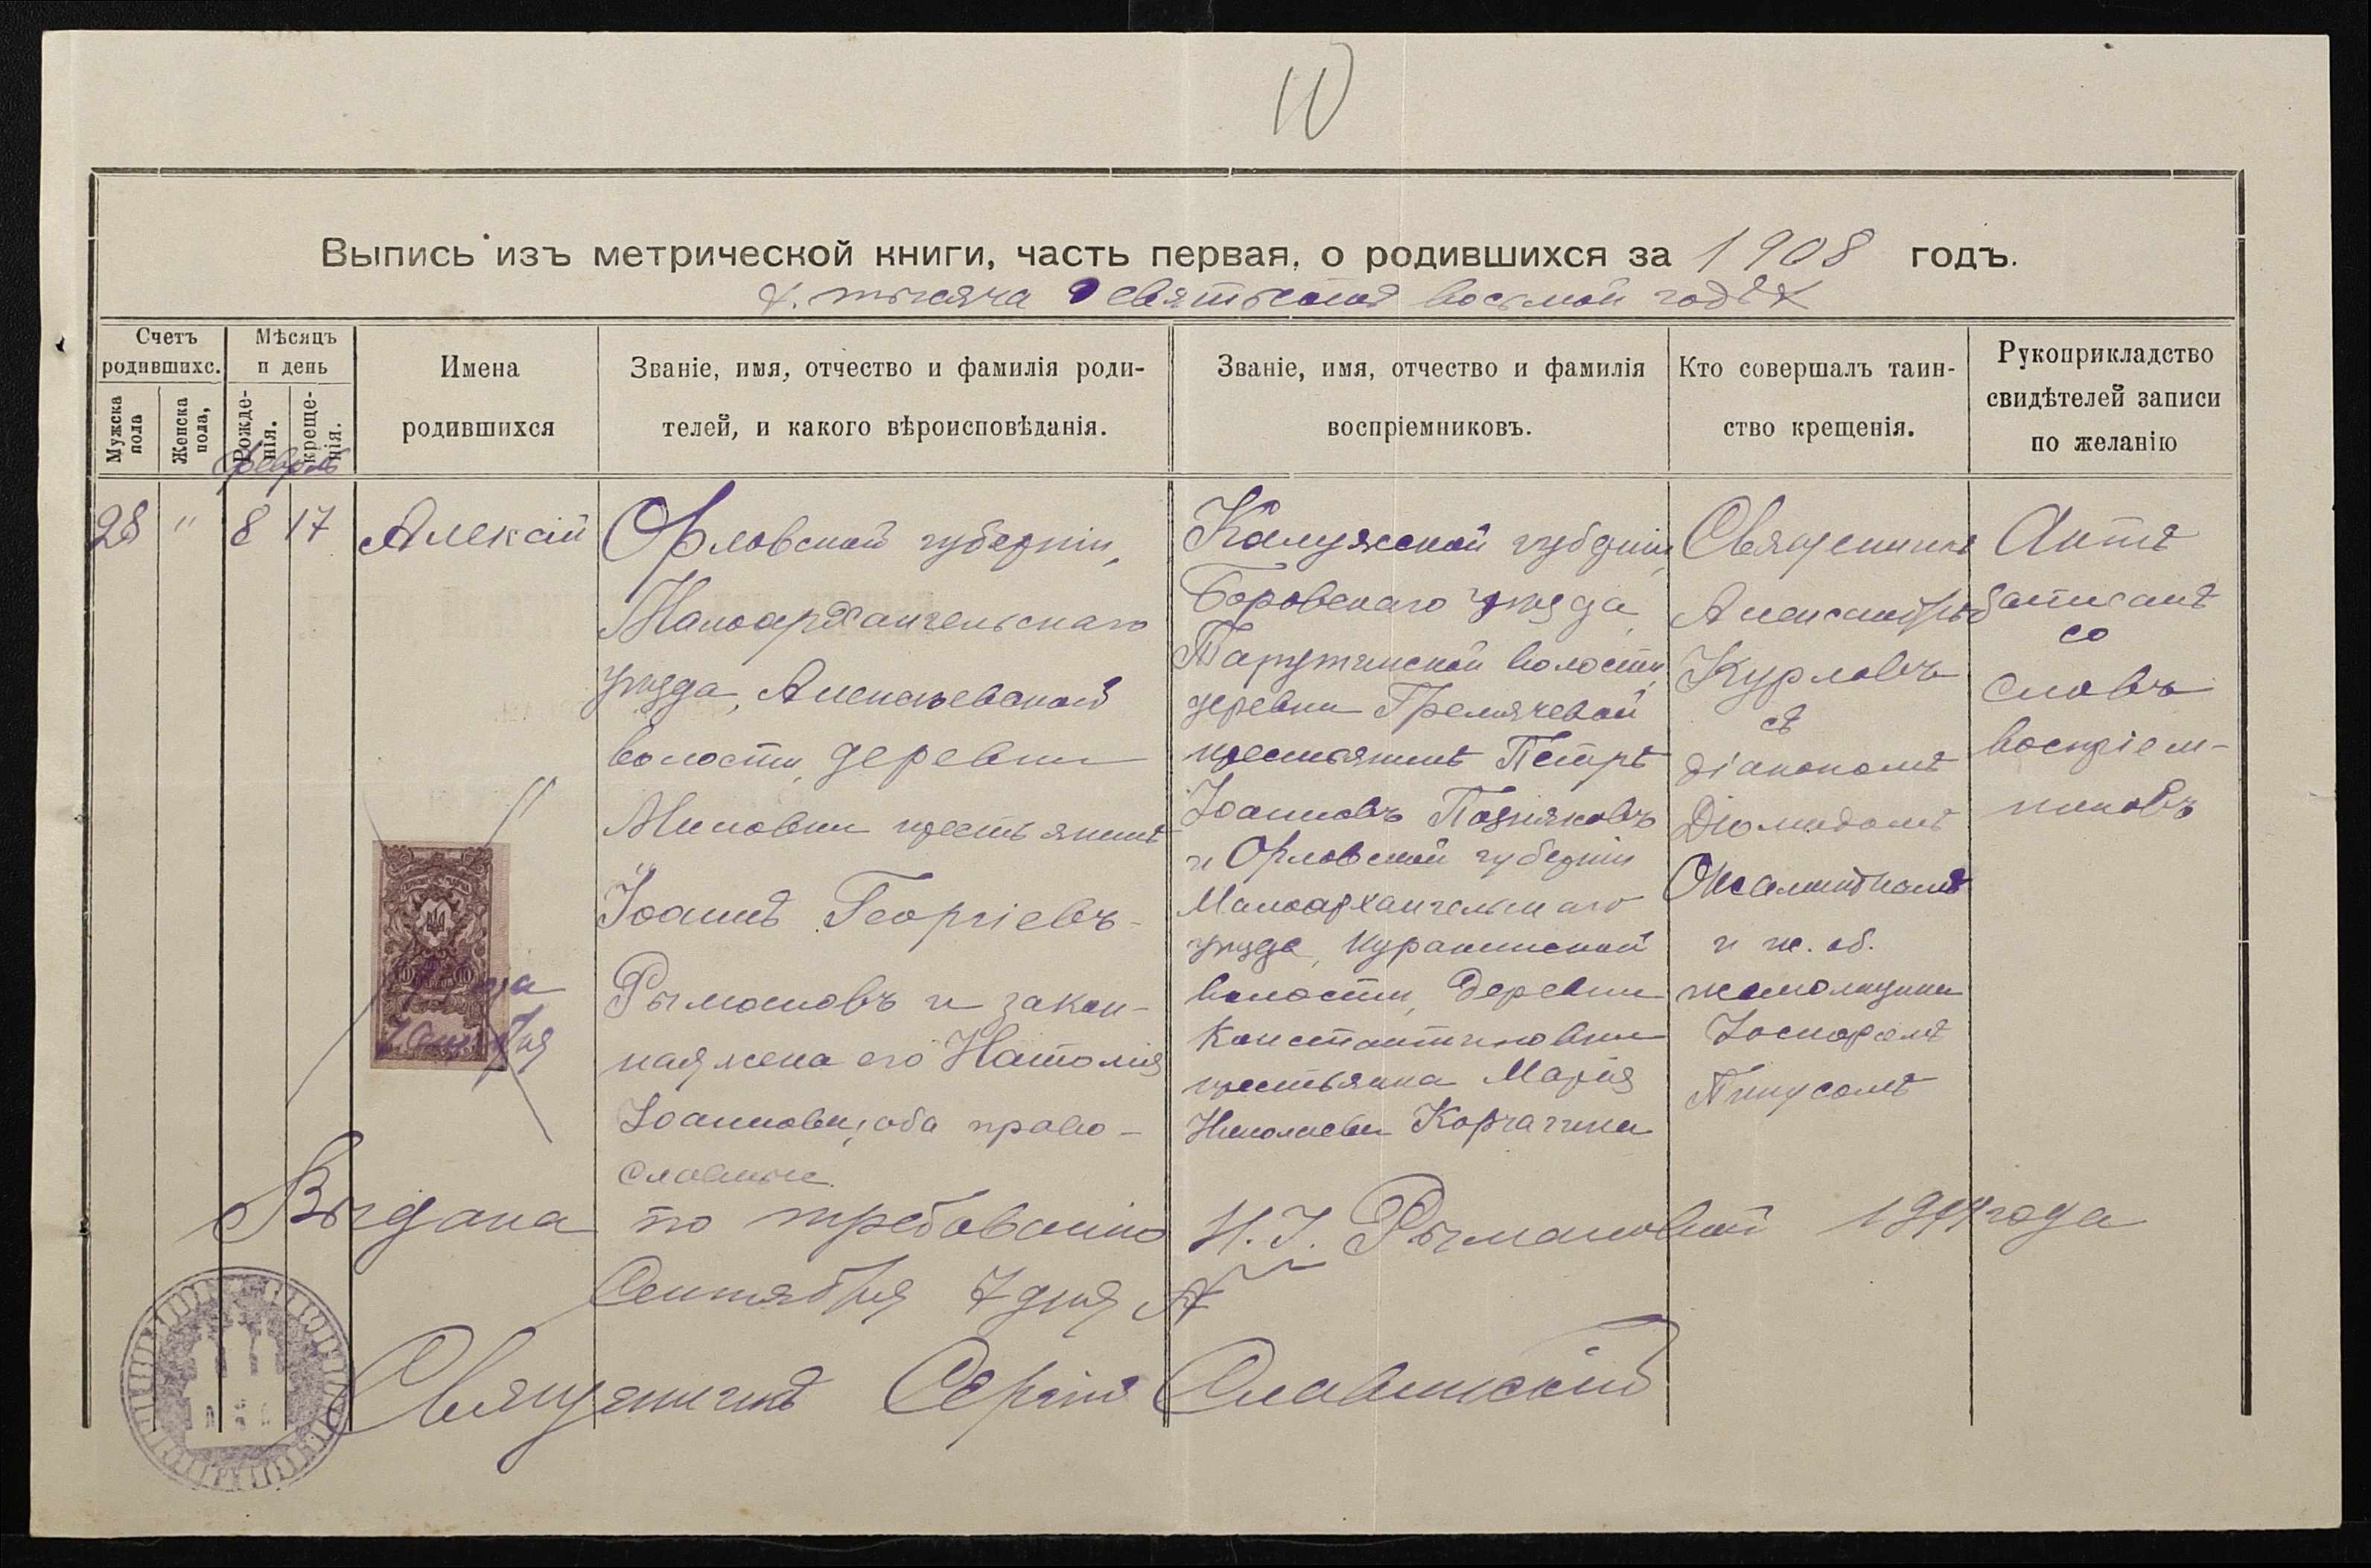 10
Выпись изъ метрической книги, часть первая, о родившихся за 1908 годъ.
тысяча девятьсотъ восьмой годъ
Счетъ родившихс.
Мужска пола
Женска пола,
Мѣсяцъ и день
Рожденія.
крещенія.
Имена
родившихся
Званіе, имя, отчество и фамилія роди-
телей, и какого вѣроисповѣданія.
Званіе, имя, отчество и фамилія
воспріемниковъ.
Кто совершалъ таин-
ство крещенія.
Рукоприкладство
свидѣтелей записи
по желанію
февраль
28 " 8 17
Алексій
Орловской губерніи,
Малоархангельскаго
уѣзда, Алексѣевской
волости, деревни
крестьянинъ
Іоаннъ Георгіевъ
Рымановъ и закон-
ная жена его Наталія
Іоанновна, оба право-
славные
Калужской губерніи,
Боровскаго уѣзда,
Тарутинской волости,
деревни
крестьянинъ Петръ
Іоанновъ Поздняковъ
и Орловской губерніи
Малоархангельскаго
уѣзда, Куракинской
волости, деревни
Константиновки
крестьянка Марія
Николаева Корчагина
Священникъ
Александръ
Курловъ
съ
діакономъ
Діомидомъ
и
псаломщикомъ
Акта
записанъ
со
словъ
воспріем-
никовъ
Выдана по требованію Н. І. Рымановой года
Сентября 7 дня
Священникъ Сергій Славинскій